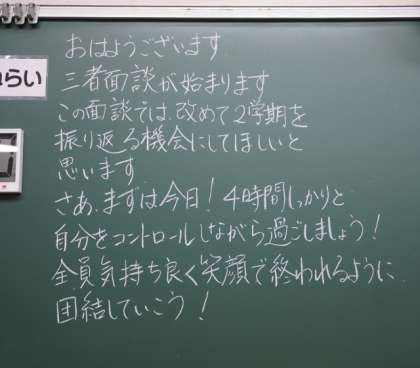 おはようございます
三者面談が始まります
この面談では、改めて2学期を
振り返る機会にしてほしいと
思います
さあ、まずは今日！4時間しっかりと
自分をコントロールしながら過ごしましょう！
全員気持ち良く笑顔で終われるように
団結していこう！
らい